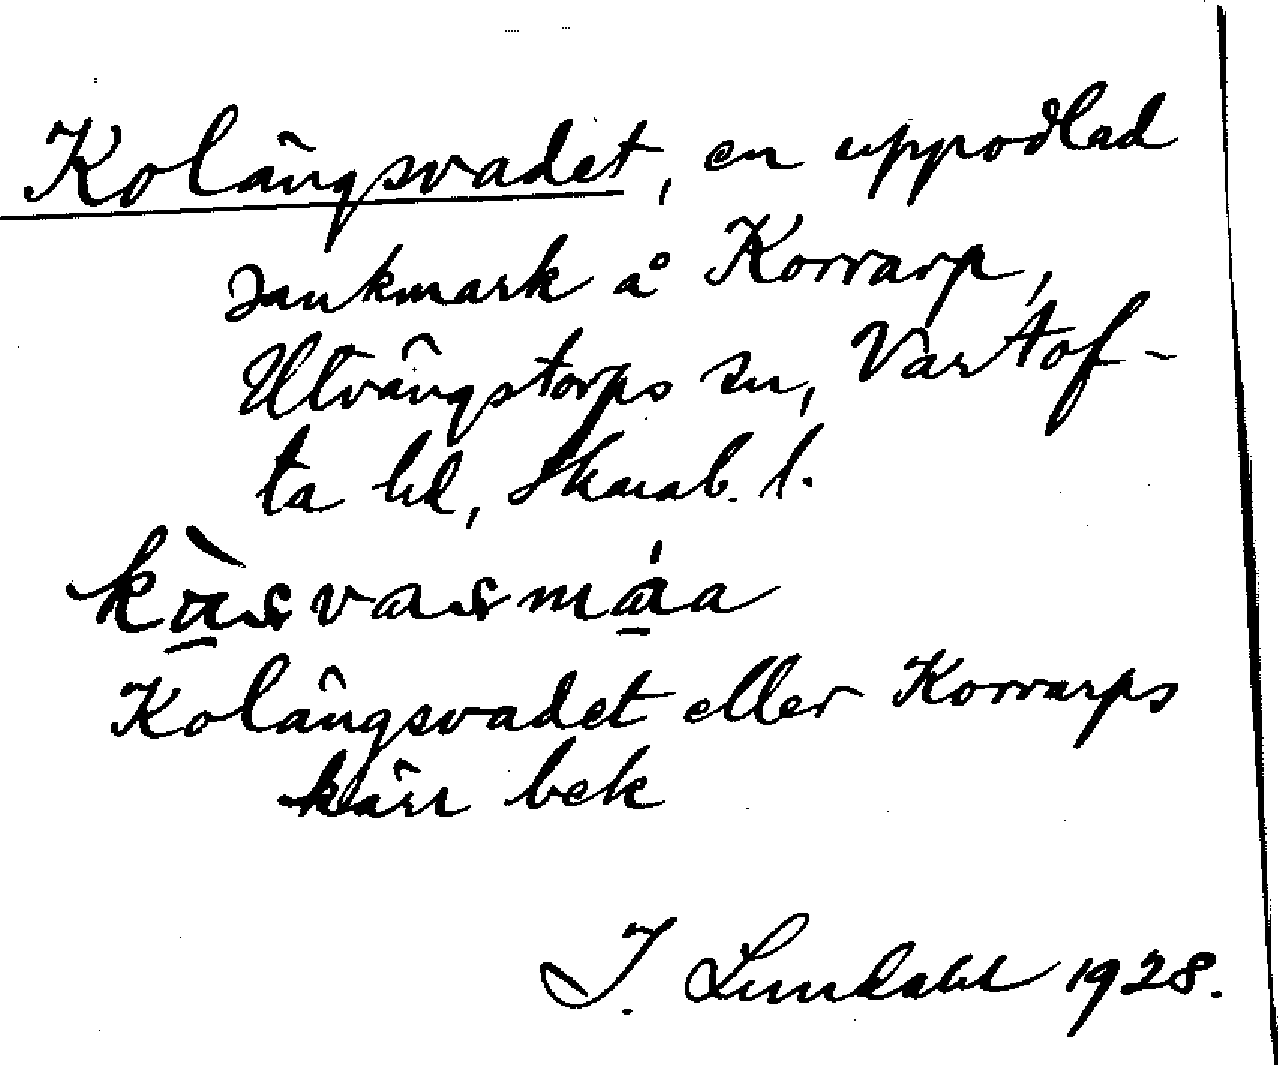 Kolängsvadet, en uppodlad
sankmark å Korrarp,
Utvängstorps sn, Vartof-
ta hd, Skarab. l.
Kolängsvadet eller Korrarps
kärr bek
I. Lundahl 1928.